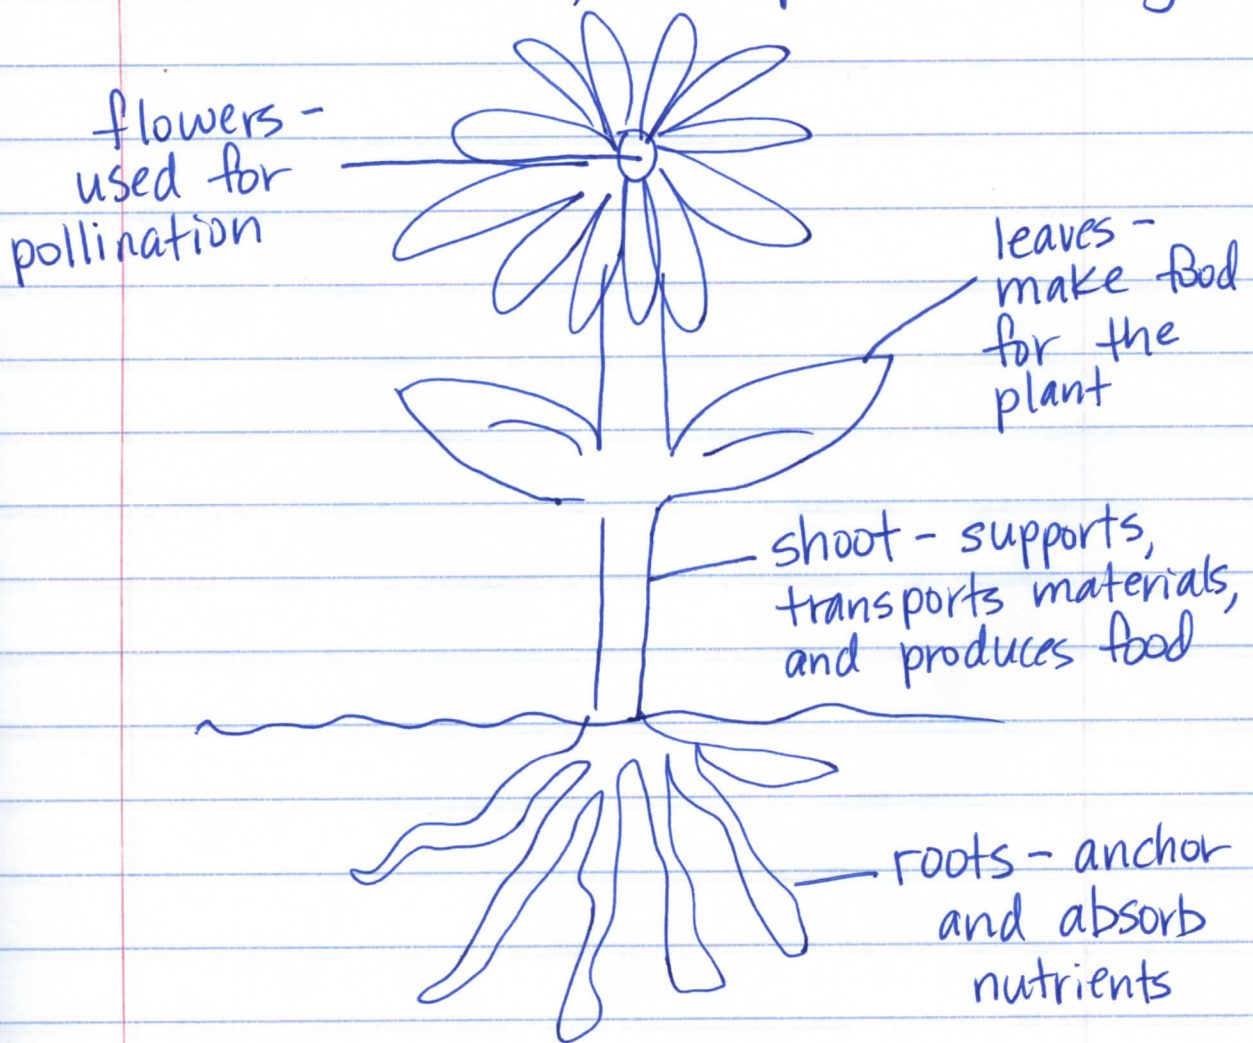 flowers -
used for
pollination
leaves -
make food
for the
plant
shoot - supports,
transports materials,
and produces food
roots - anchor
and absorb
nutrients